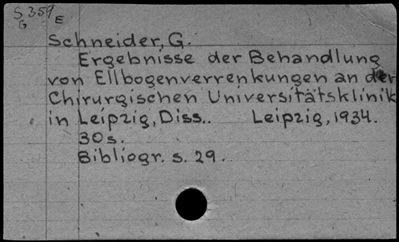 S 359 E
G
Schneider, G.
Ergebnisse der Behandlung
von Ellbogenverrenkungen an der
Chirurgischen Universitätsklinik
in Leipzig, Diss.. Leipzig, 1934.
30s.
Bibliogr. s. 29.